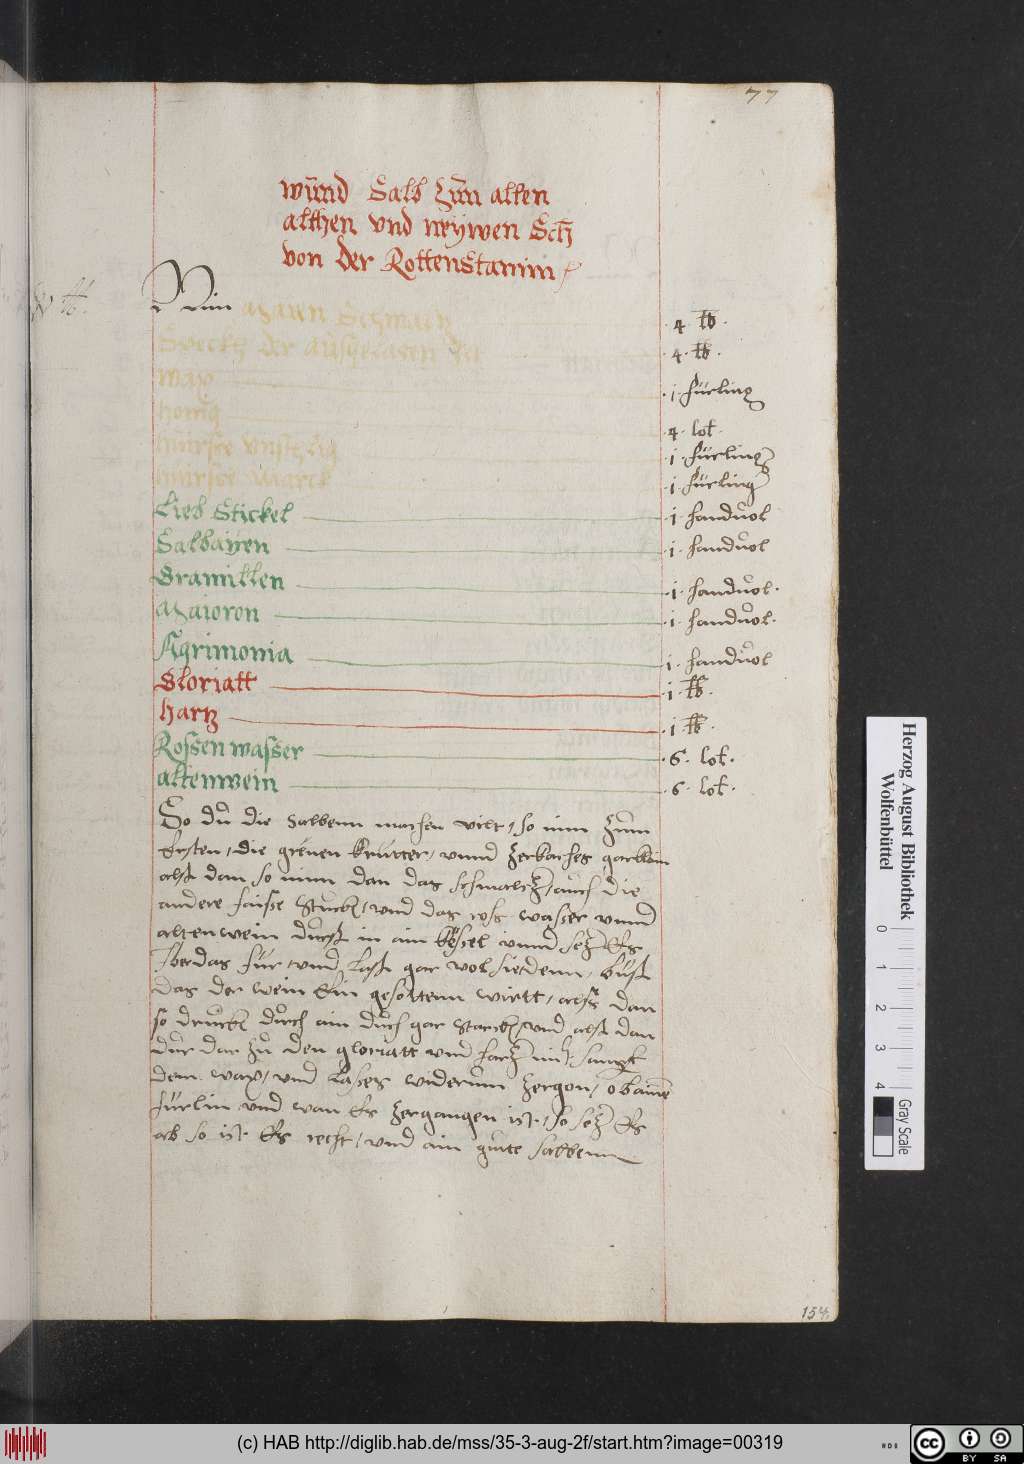 77
wund Salb zun alten
althen vnd neywen Sch
von der Rottenstamm
Nim mayen Schmaltz 4 ℔.
Speckh der 4 ℔.
wax 1 fürling
honig 4 lot
hürsse vnschlig 1 fürling
hürsse marck 1 fürling
Lieb Stickel 1 handvol
Salbayen 1 handvol
Gramillen 1 handvol.
Maioron 1 handvol.
Agrimonia 1 handvol
Gloriatt 1 ℔.
hartz 1 ℔.
Rossen wasser 6. lot.
altenwein 6. lot.
So du die Salbenn machen wilt, so nim zum
Ersten, die grienen kreutter, vnnd zerhackes gar klain
alß dan so nim dan das schmaltz, auch die
andere faisse Stuckh, vnd das ros wasser vnnd
alten wein durch in ain kessel vnnd setz Es
Yber das für, vnd laß gar wol siedenn, biß
das der wein Ein gesottenn wirtt, alß dan
so druckh durch ain duch gar starckh, vnd alß dan
dur dar zu den gloriatt vnd hartz mit sampt
dem wax, vnd lasses widerum zergon, ob aim
fürlin vnd wan Es zergangen ist, so setz Es
ab so ist Es recht, vnd ain guite salbenn
154
Herzog August Bibliothek
Wolfenbüttel
0 1 2 3 4
Gray Scale
(c) HAB http://diglib.hab.de/mss/35-3-aug-2f/start.htm?image=00319
cc BY SA